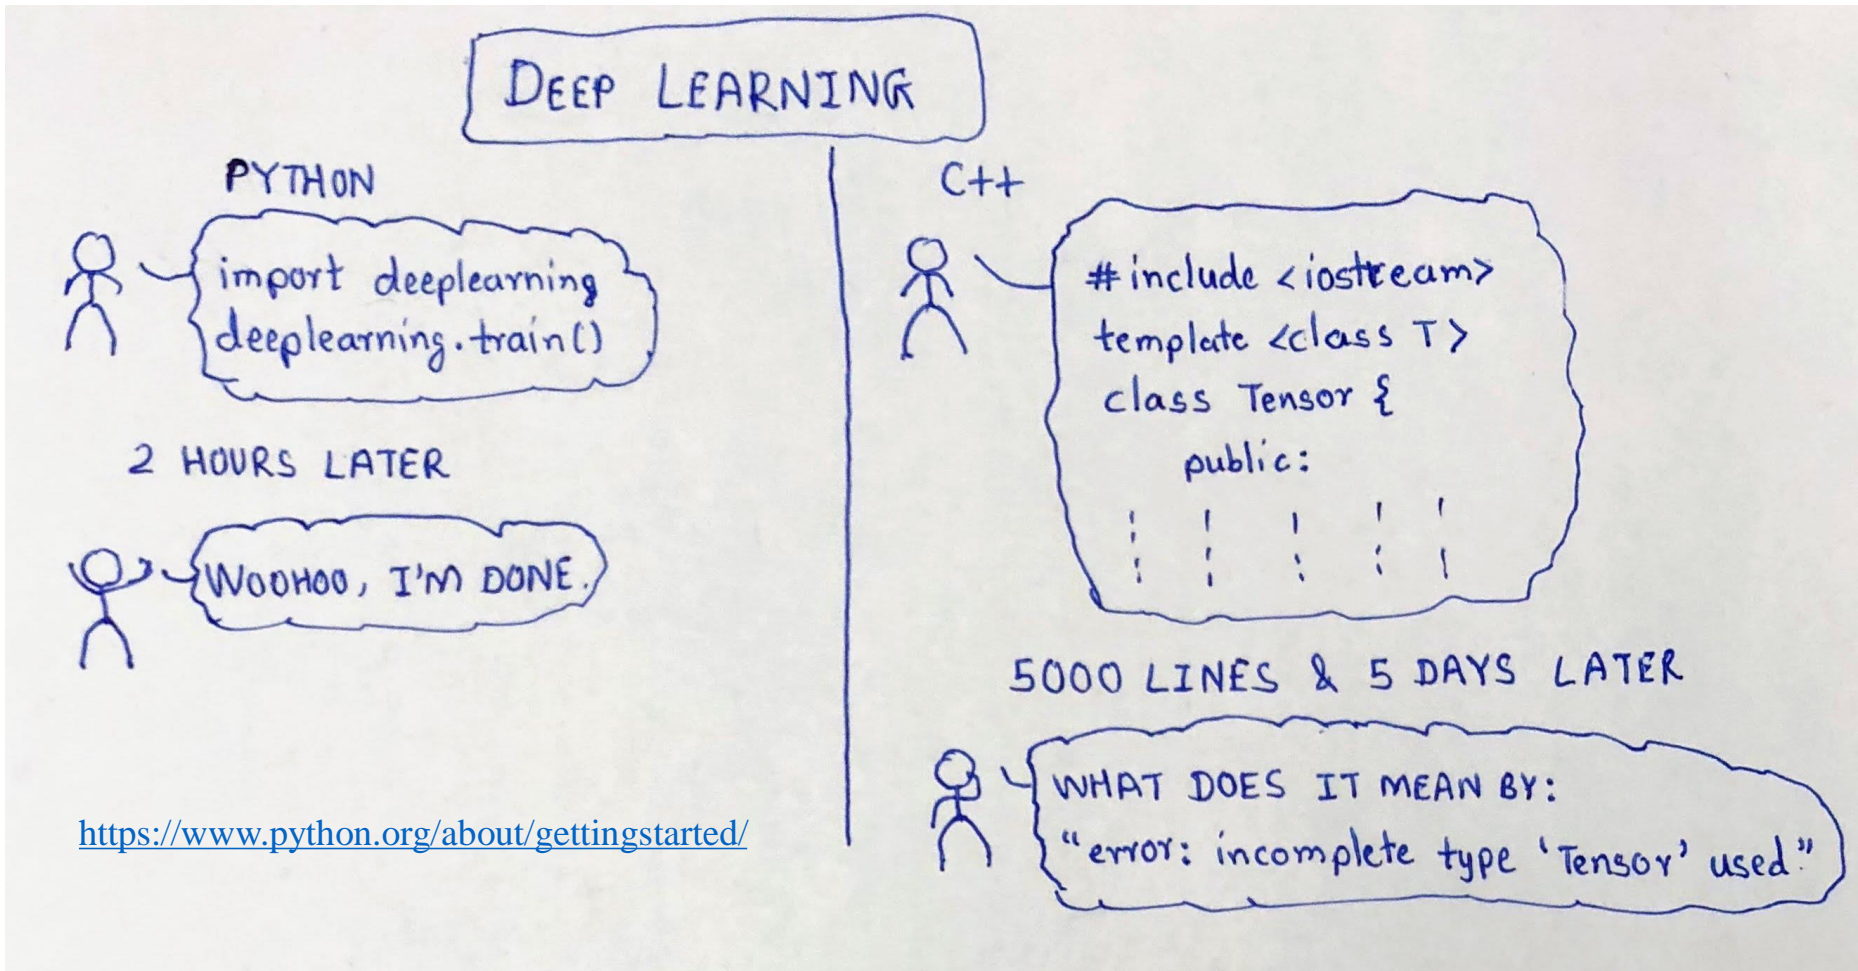 DEEP LEARNING
PYTHON
import deeplearning
deeplearning.train()
2 HOURS LATER
WOOHOO, I'M DONE.
https://www.python.org/about/gettingstarted/
C++
#include <iostream>
template <class T>
class Tensor {
public:
5000 LINES & 5 DAYS LATER
WHAT DOES IT MEAN BY:
"error: incomplete type 'Tensor' used"